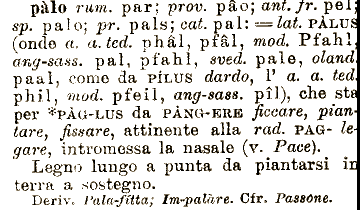 pàlo rum. par; prov. pâo; ant. fr. pel;
sp. palo; pr. pals; cat. pal: = lat. PÀLUS
(onde a. a. ted. phâl, pfâl, mod. Pfahl,
ang-sass. pal, pfahl, sved. pale, oland.
paal, come da PÌLUS dardo, l' a. a. ted.
phil, mod. pfeil, ang-sass. pîl), che sta
per *PÀG-LUS da PÀNG-ERE ficcare, pian-
tare, fissare, attinente alla rad. PAG- le-
gare, intromessa la nasale (v. Pace).
Legno lungo a punta da piantarsi in
terra a sostegno.
Deriv. Pala-fitta; Im-palàre. Cfr. Passone.